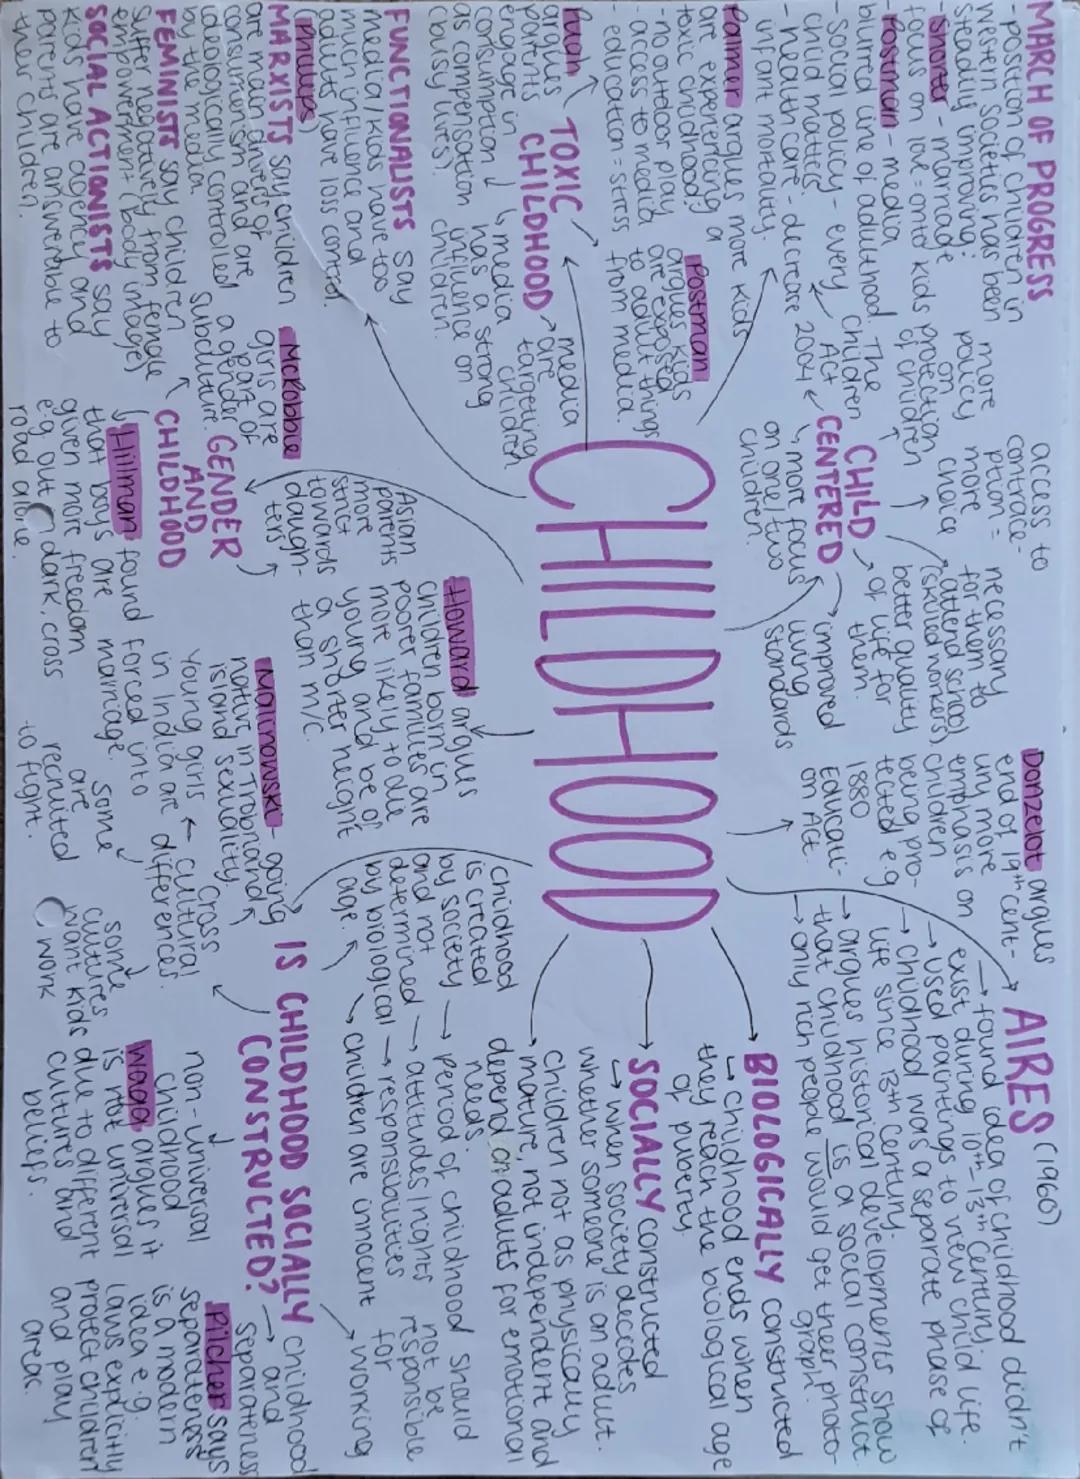 MARCH OF PROGRESS
- position of children in
western societies has been
steadily improving:
- Shorter - marriage
focus on love = onto kids
- Postman - media
blurred line of adulthood.
- social policy - every
child matters
- healthcare - decrease
infant mortality.
more
policy
on
protection
of children
The
Children
Act
2004
access to
contrace-
ption =
more
choice
necessary
for them to
attend school
(skilled workers)
CHILD
CENTERED
better quality
of life for
them.
improved
living
standards
more focus
on one/two
children.
Donzelot argues
end of 19th cent-
ury more
emphasis on
children
being pro-
tected e.g
1880
Educati-
on Act.
AIRES (1960)
→ found idea of childhood didn't
exist during 10th-13th century.
→ used paintings to view child life.
→ childhood was a separate phase of
life since 13th century.
→ argues historical developments show
that childhood is a social construct.
→ only rich people would get their photo-
graph.
BIOLOGICALLY constructed
→ childhood ends when
they reach the biological age
of puberty.
SOCIALLY constructed
→ when society decides
whether someone is an adult.
children not as physically
mature, not independent and
depend on adults for emotional
needs.
CHILDHOOD
Palmer argues more kids
are experiencing a
toxic childhood:
- no outdoor play
- access to media
- education = stress
Postman
argues kids
are exposed
to adult things
from media.
TOXIC
CHILDHOOD
Pugh
argues
parents
engage in
consumption
as compensation
(busy lives).
media
are
targeting
children
media
has a strong
influence on
children.
FUNCTIONALISTS say
media/kids have too
much influence and
adults have lost control
(Phillips)
MARXISTS say children
are main drivers of
consumerism and are
ideologically controlled
by the media.
FEMINISTS say children
suffer negatively from female
empowerment (body image)
SOCIAL ACTIONISTS say
kids have agency and
parents are answerable to
their children.
McRobbie
girls are
part of
a gender
subculture.
GENDER
AND
CHILDHOOD
Asian
parents
more
strict
towards
daugh-
ters
Hillman found
that boys are
given more freedom
e.g out in dark, cross
road alone.
Howard argues
children born in
poorer families are
more likely to die
young and be of
a shorter height
than m/c.
Malinowski - going
native in Trobriand
island sexuality.
Cross
cultural
differences.
Young girls
in India are
forced into
marriage.
some
are
recruited
to fight.
some
cultures
want kids
work
childhood
is created
by society
and not
determined
by biological
age.
→ period of childhood should
not be
responsible
for
working
→ attitudes/rights
→ responsibilities
→ children are innocent
IS CHILDHOOD SOCIALLY
CONSTRUCTED?
childhood
and
separateness
non-universal
childhood
Wagg argues it
is not universal
due to different
cultures and
beliefs.
Pilcher says
separateness
is a modern
idea e.g.
laws explicitly
protect children
and play
area.